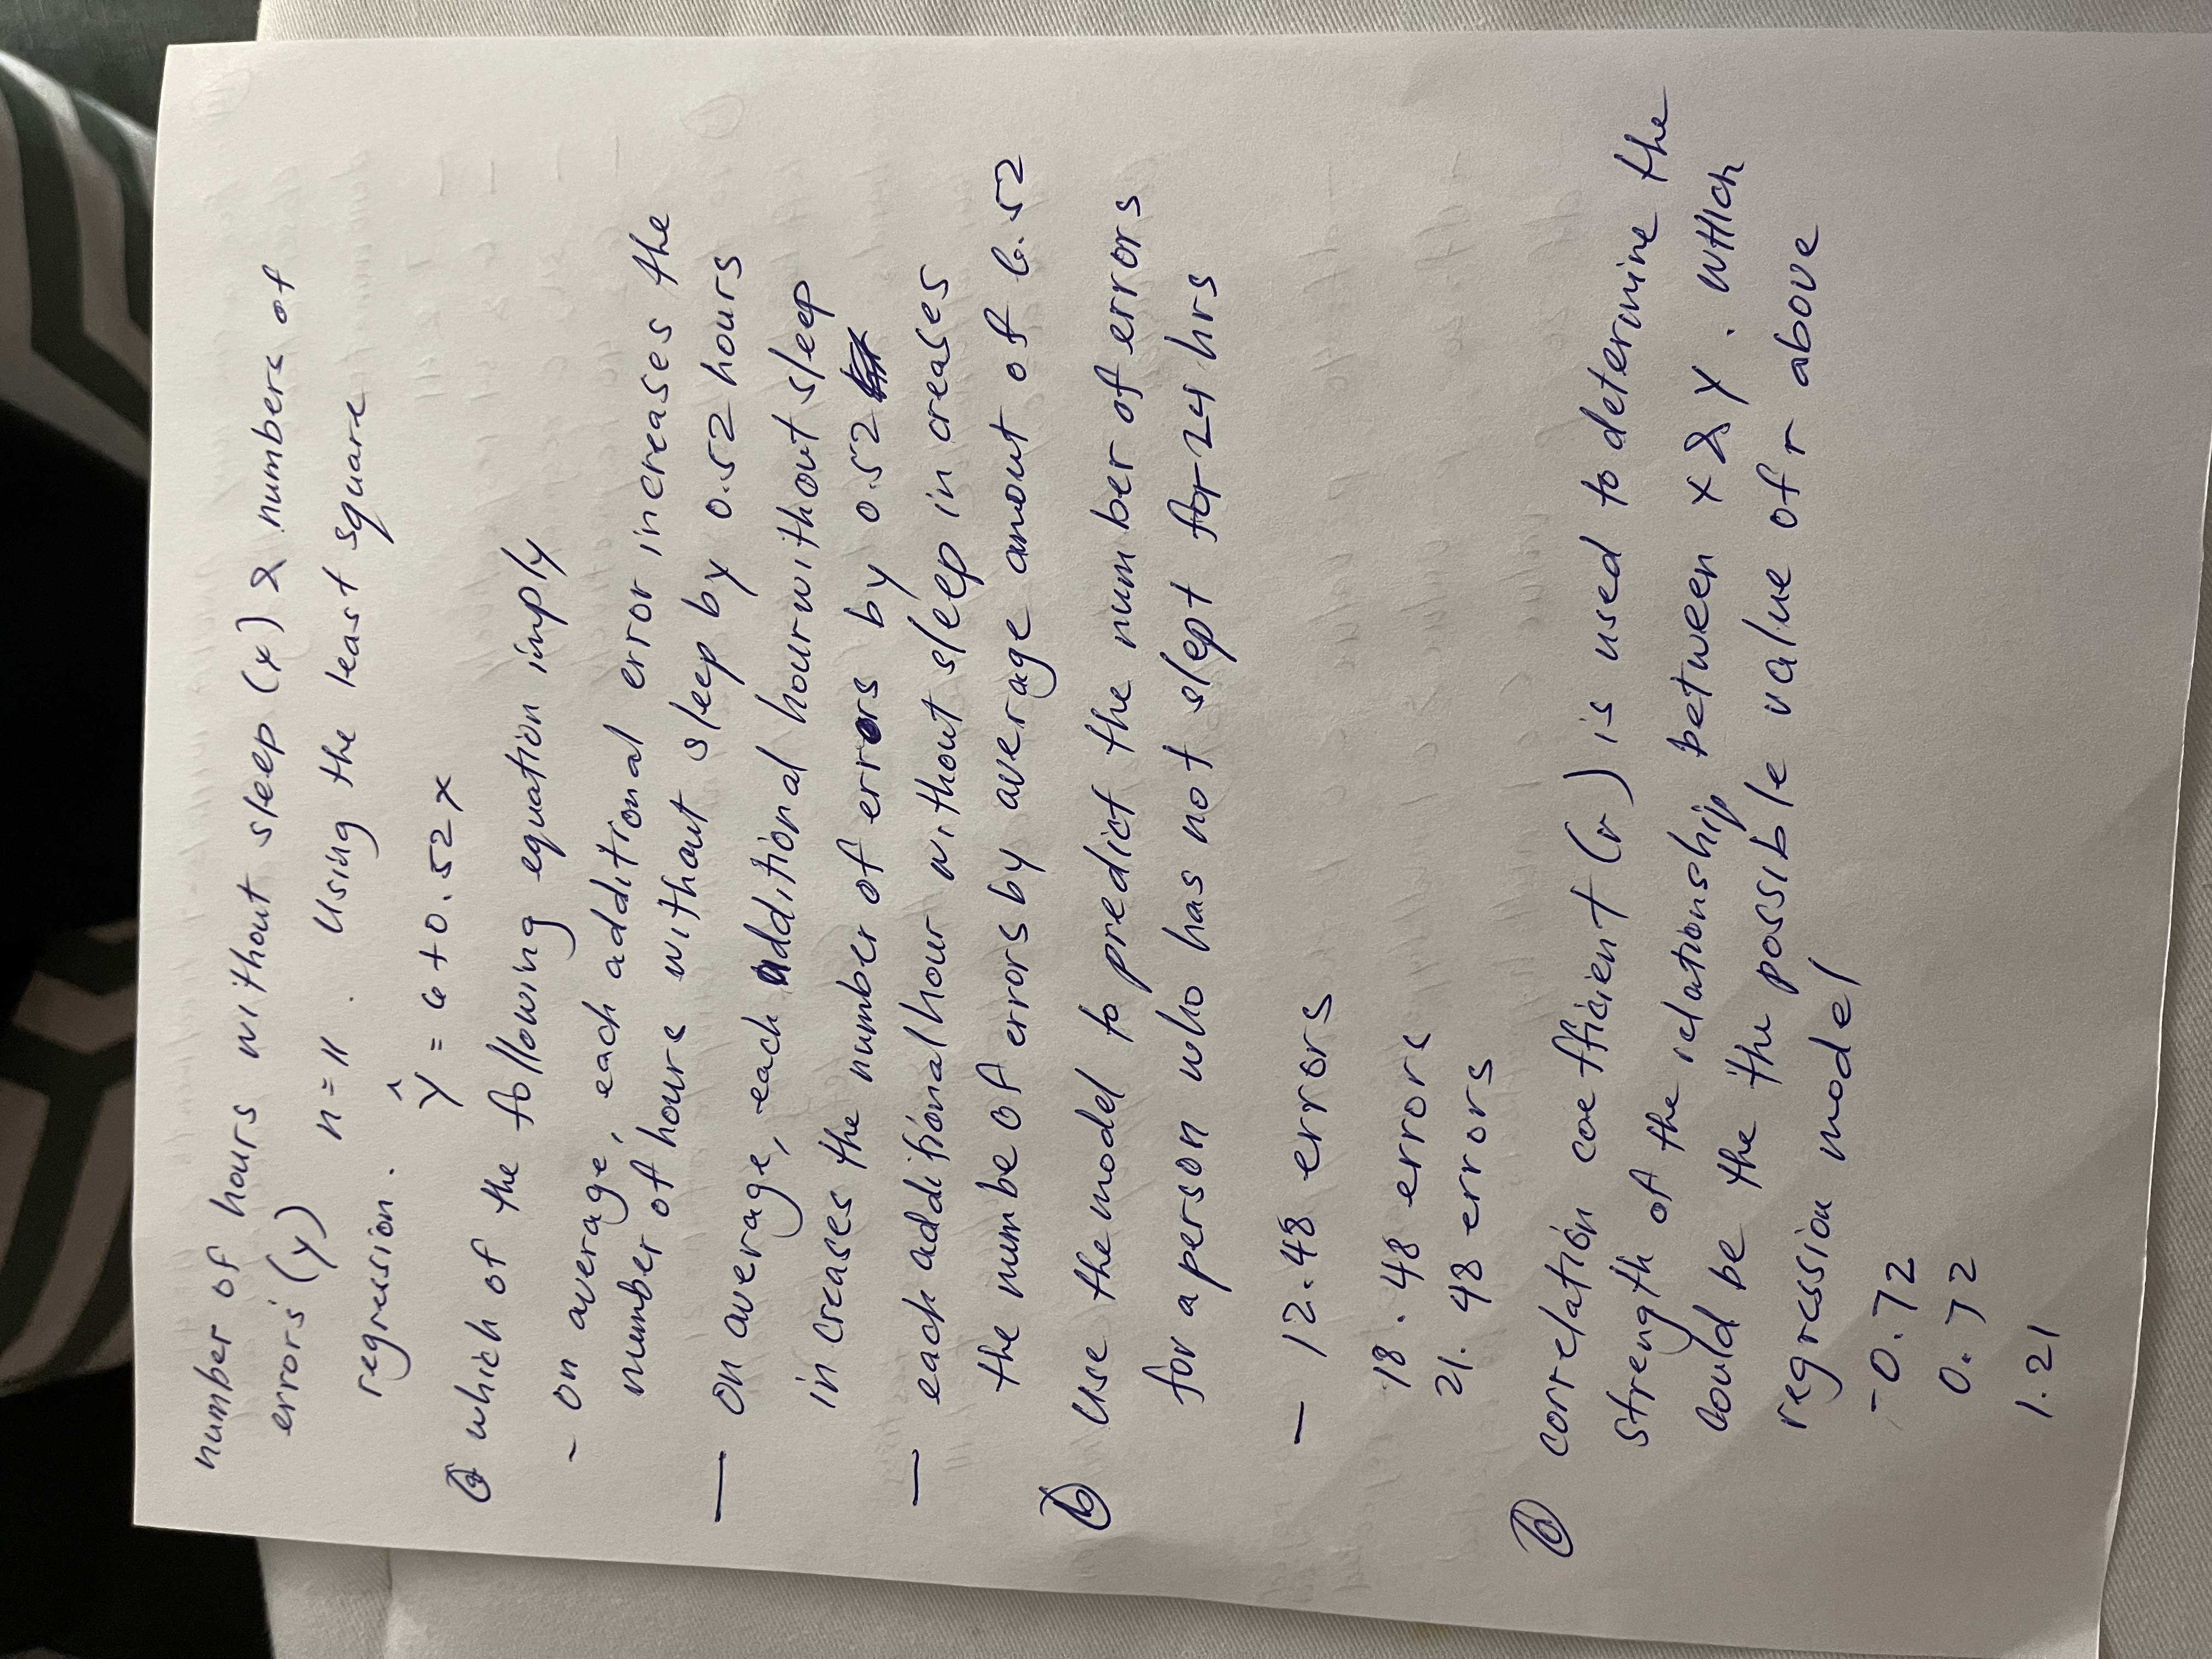 number of hours without sleep (x) & numbers of
errors (y) n = 11 . Using the least square
regression.
ŷ = 6 + 0.52 x
a which of the following equation imply
- on average, each additional error increases the
number of hours without sleep by 0.52 hours
— on average, each additional hour without sleep
increases the number of errors by 0.52
— each additional hour without sleep in creases
the numbe of errors by average anout of 6.52
b use the model to predict the number of errors
for a person who has not slept for 24 hrs
— 12.48 errors
18.48 errors
21.48 errors
correlation coefficient (r) is used to determine the
strength of the relationship between x & y . which
could be the the possible value of r above
regression model
-0.72
0.72
1.21